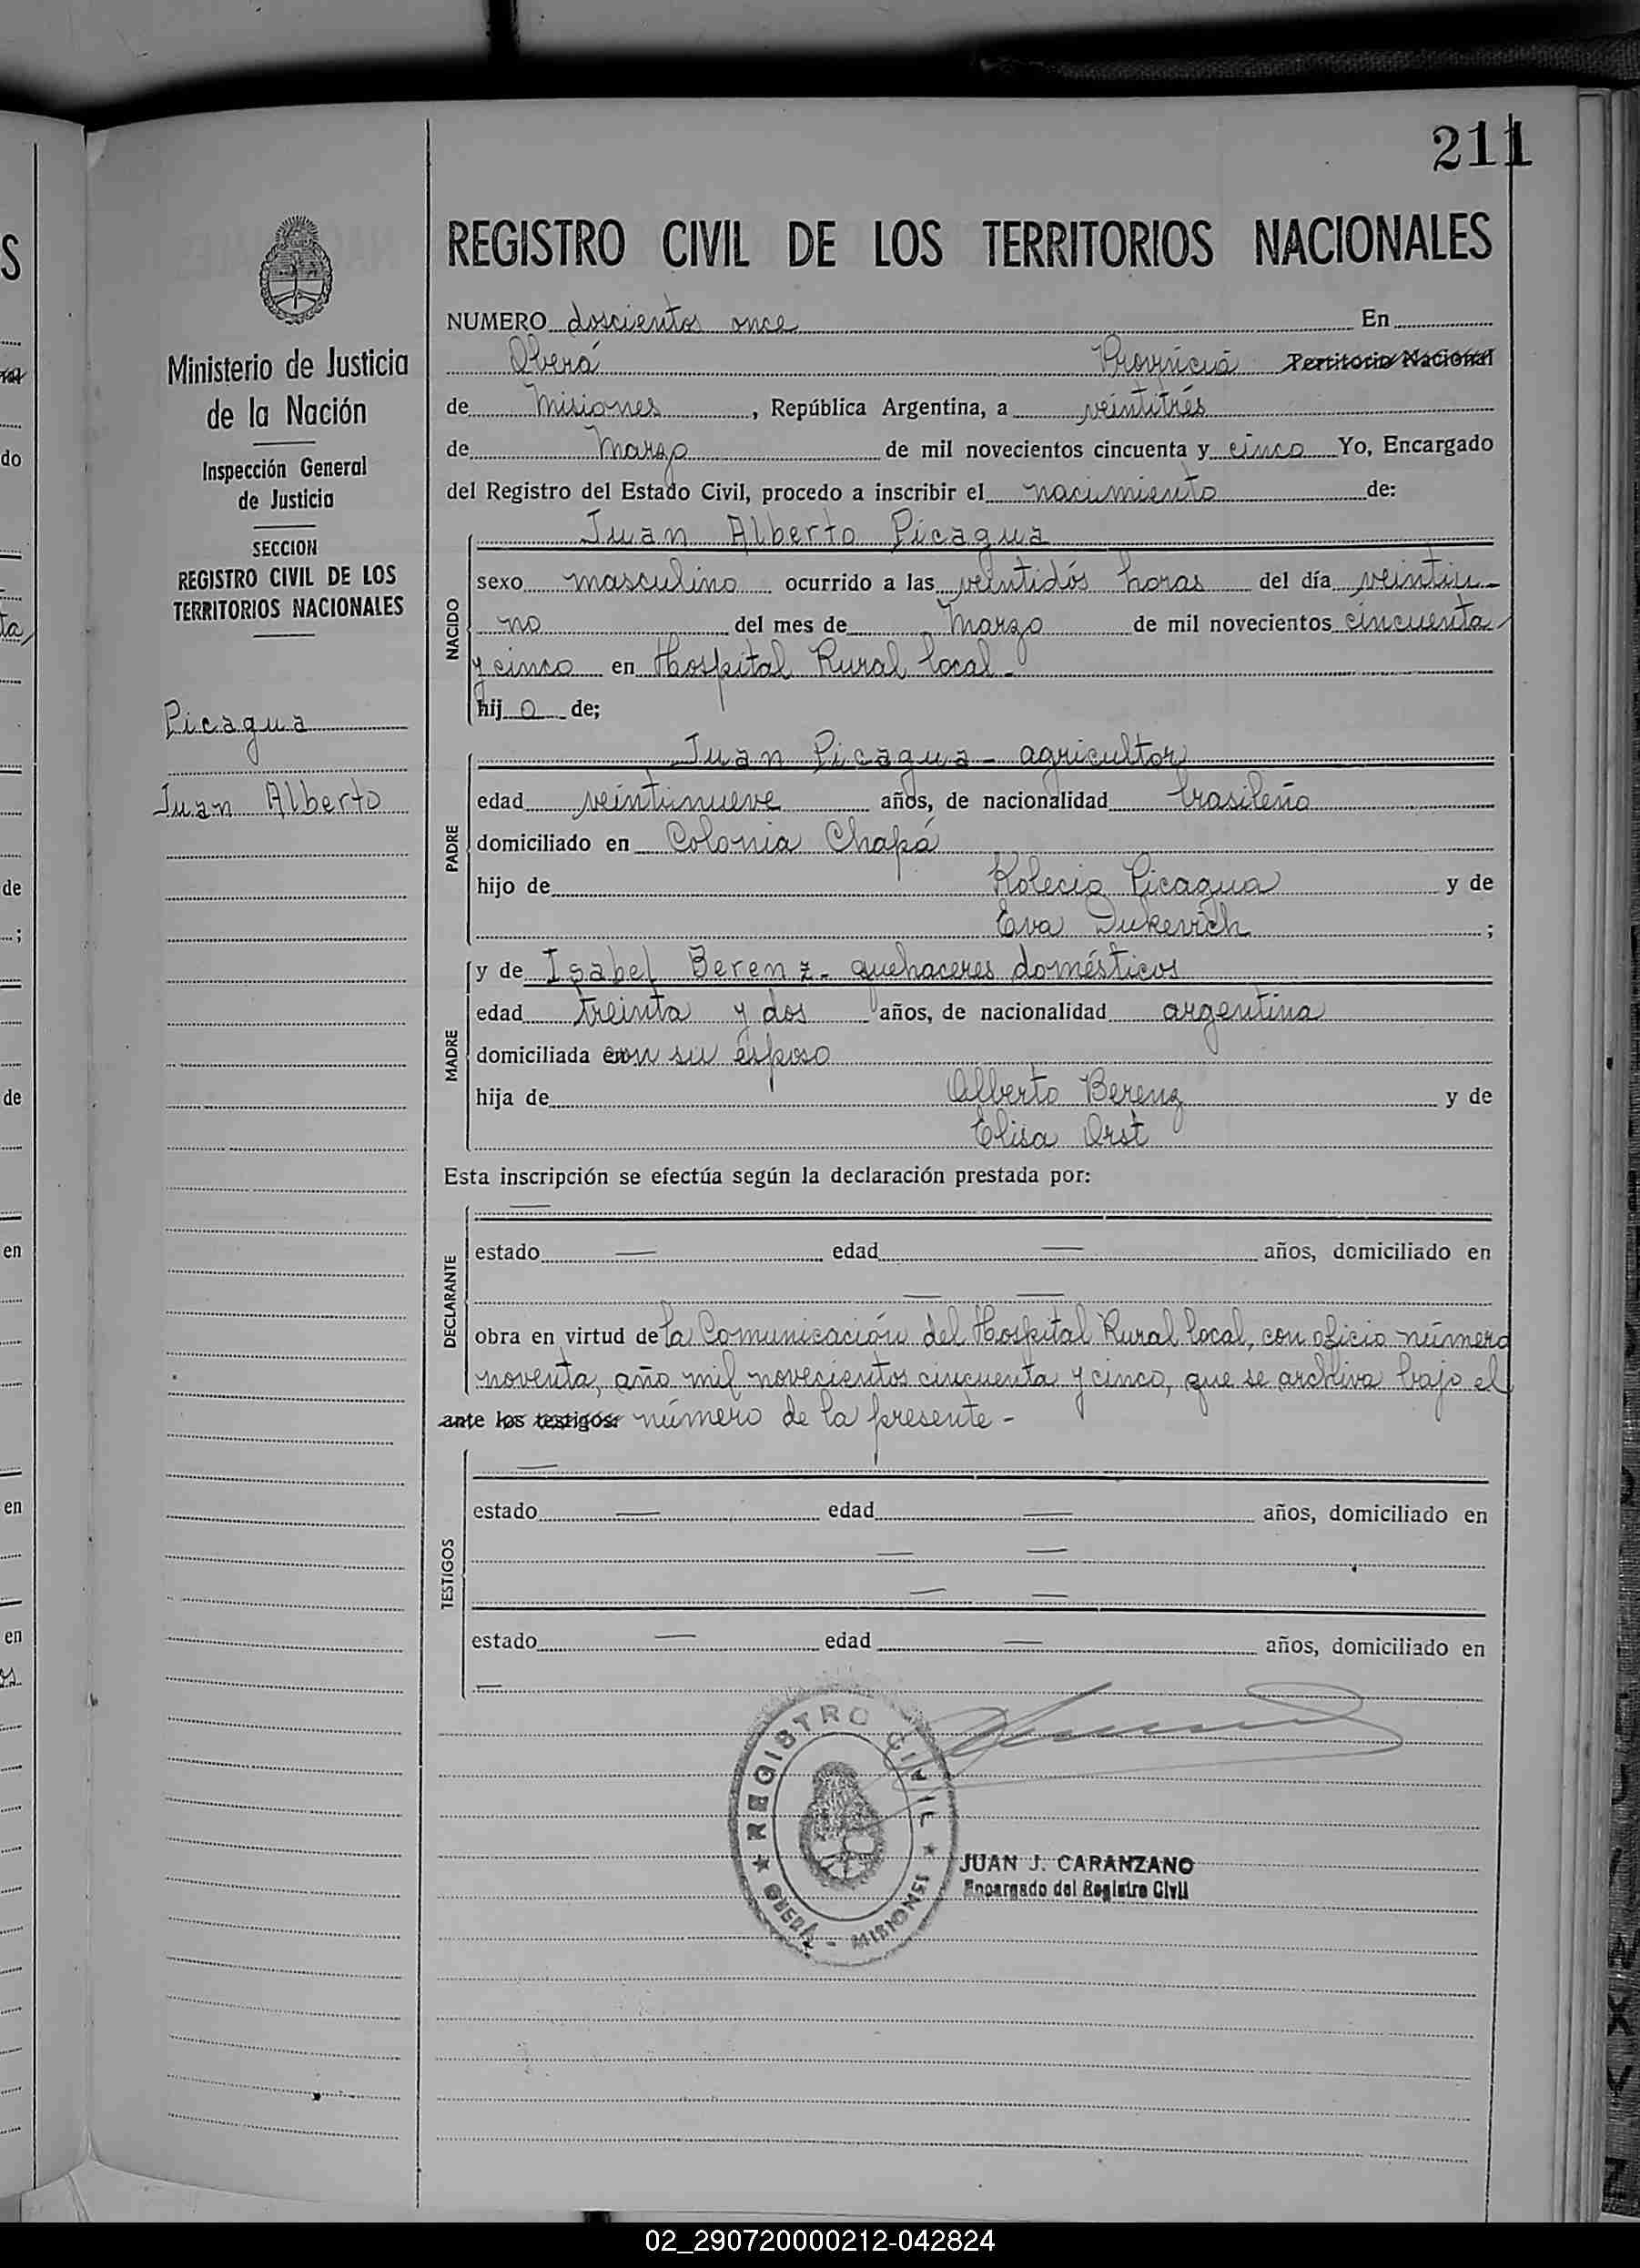 211
REGISTRO CIVIL DE LOS TERRITORIOS NACIONALES
Ministerio de Justicia
de la Nación
Inspección General
de Justicia
SECCION
REGISTRO CIVIL DE LOS
TERRITORIOS NACIONALES
Picagua
Juan Alberto
NUMERO doscientos once En
Oberá Provincia Territorio Nacional
de Misiones, República Argentina, a veintitrés
de Marzo de mil novecientos cincuenta y cinco Yo, Encargado
del Registro del Estado Civil, procedo a inscribir el nacimiento de:
NACIDO
Juan Alberto Picagua
sexo masculino ocurrido a las veintidós horas del día veintiu-
no del mes de Marzo de mil novecientos cincuenta
y cinco en Hospital Rural local-
hijo de;
PADRE
Juan Picagua - agricultor
edad veintinueve años, de nacionalidad brasileño
domiciliado en Colonia Chapá
hijo de Kolecio Picagua y de
Eva Dukevich ;
MADRE
y de Isabel Berenz - quehaceres domésticos
edad treinta y dos años, de nacionalidad argentina
domiciliada con su esposo
hija de Alberto Berenz y de
Elisa Orst
Esta inscripción se efectúa según la declaración prestada por:
DECLARANTE
estado — edad — años, domiciliado en
obra en virtud de la Comunicación del Hospital Rural local, con oficio número
noventa, año mil novecientos cincuenta y cinco, que se archiva bajo el
ante los testigos: número de la presente -
TESTIGOS
estado — edad — años, domiciliado en
estado — edad — años, domiciliado en
REGISTRO CIVIL
OBERÁ - MISIONES
JUAN J. CARANZANO
Encargado del Registro Civil
02_290720000212-042824